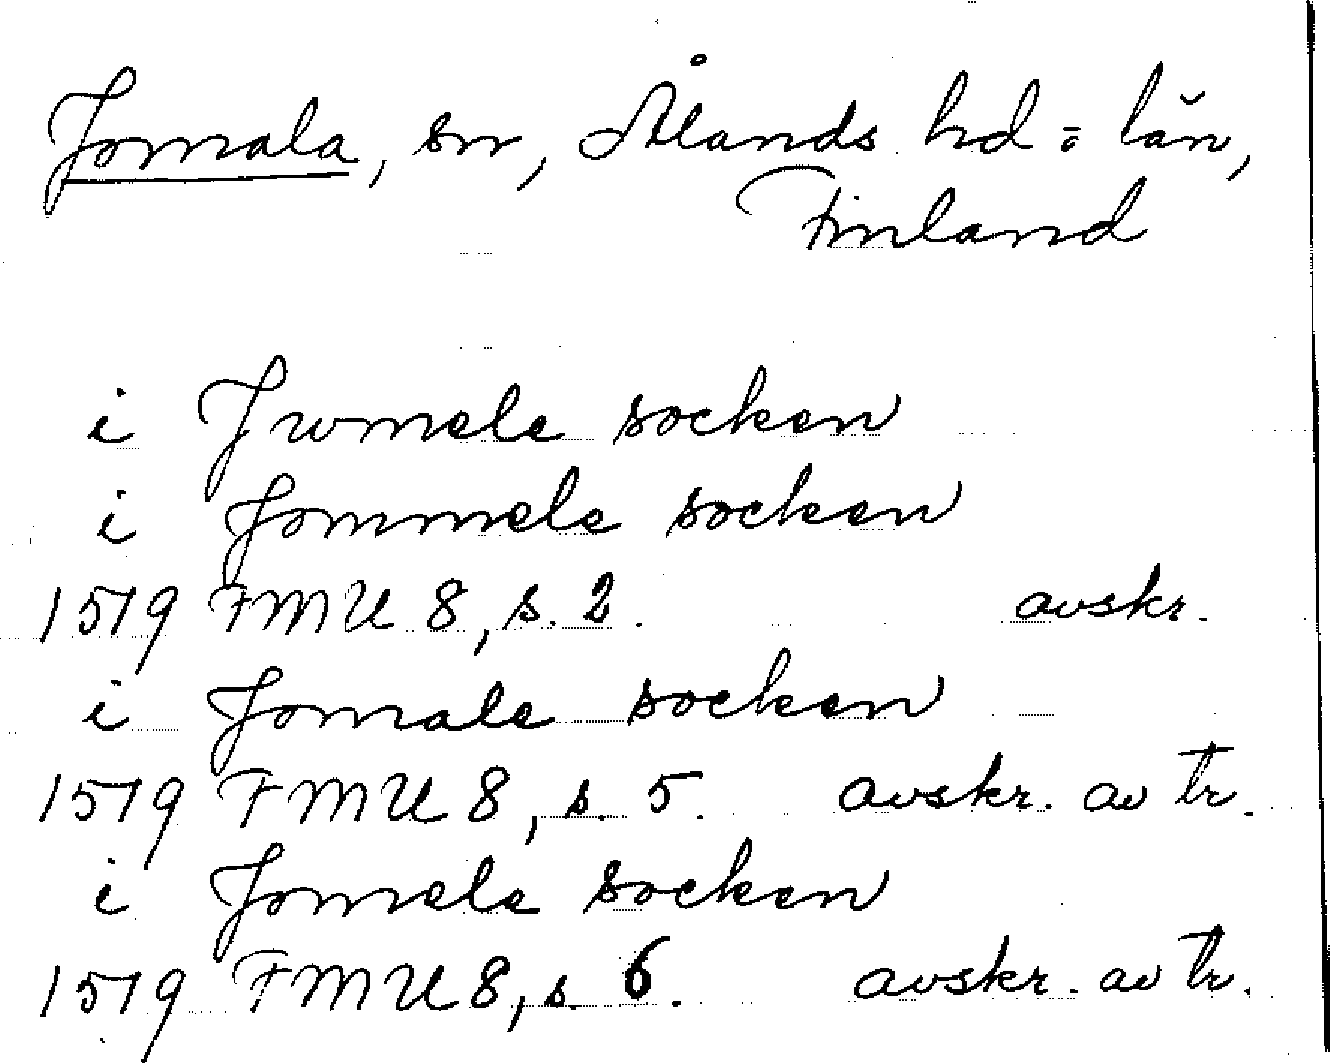 Jomala, sn, Ålands hd o län,
Finland
i Jwmele socken
i Jommele socken
1519 FMU 8, s. 2. avskr.
i Jomale socken
1519 FMU 8, s. 5. avskr. av tr.
i Jomele socken
1519 FMU 8, s. 6. avskr. av tr.